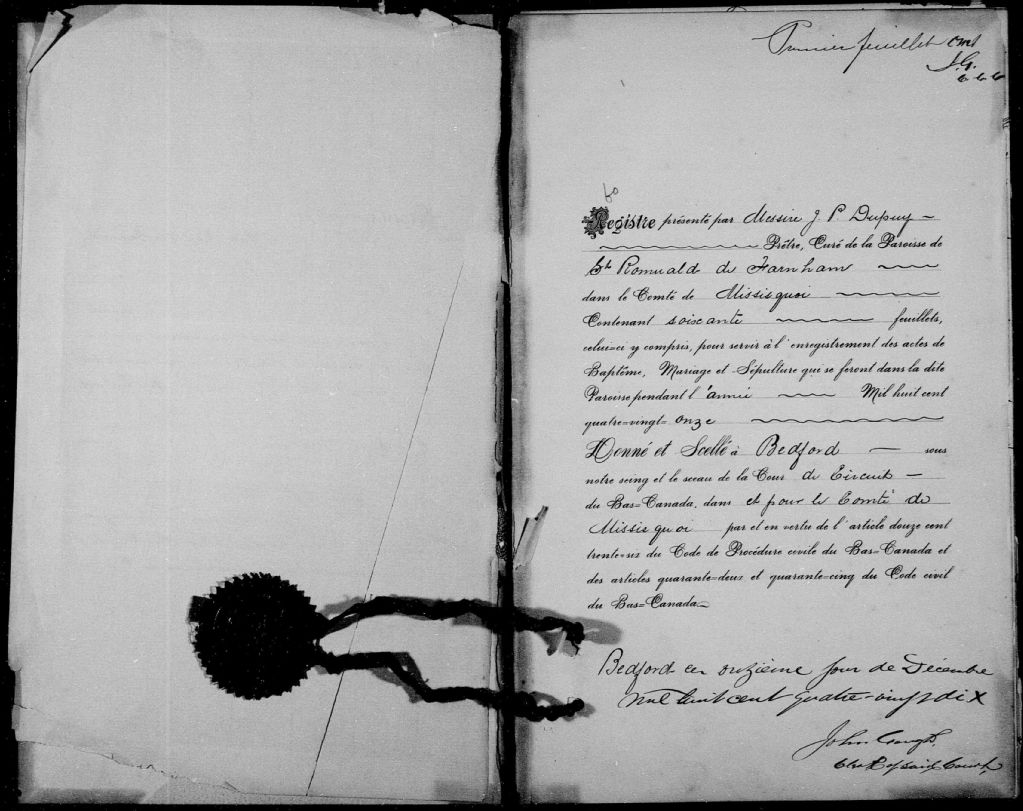 Premier feuillet
J.G.
60
Registre présenté par Messire J. P. Dupuy
Prêtre, Curé de la Paroisse de
St Romuald de Farnham
dans le Comté de Missisquoi
Contenant soixante feuillets,
celui=ci y compris, pour servir à l'enregistrement des actes de
Baptême, Mariage et Sépulture qui se feront dans la dite
Paroisse pendant l'année Mil huit cent
quatre=vingt= onze
Donné et Scellé à Bedford sous
notre seing et le sceau de la Cour de Circuit
du Bas=Canada, dans et pour le Comté de
Missisquoi par et en vertu de l'article douze cent
trente=six du Code de Procédure civile du Bas=Canada et
des articles quarante=deux et quarante=cinq du Code civil
du Bas=Canada
Bedford ce onzième jour de Décembre
mil huit cent quatre-vingt dix
John Gough,
Clerk of said Court